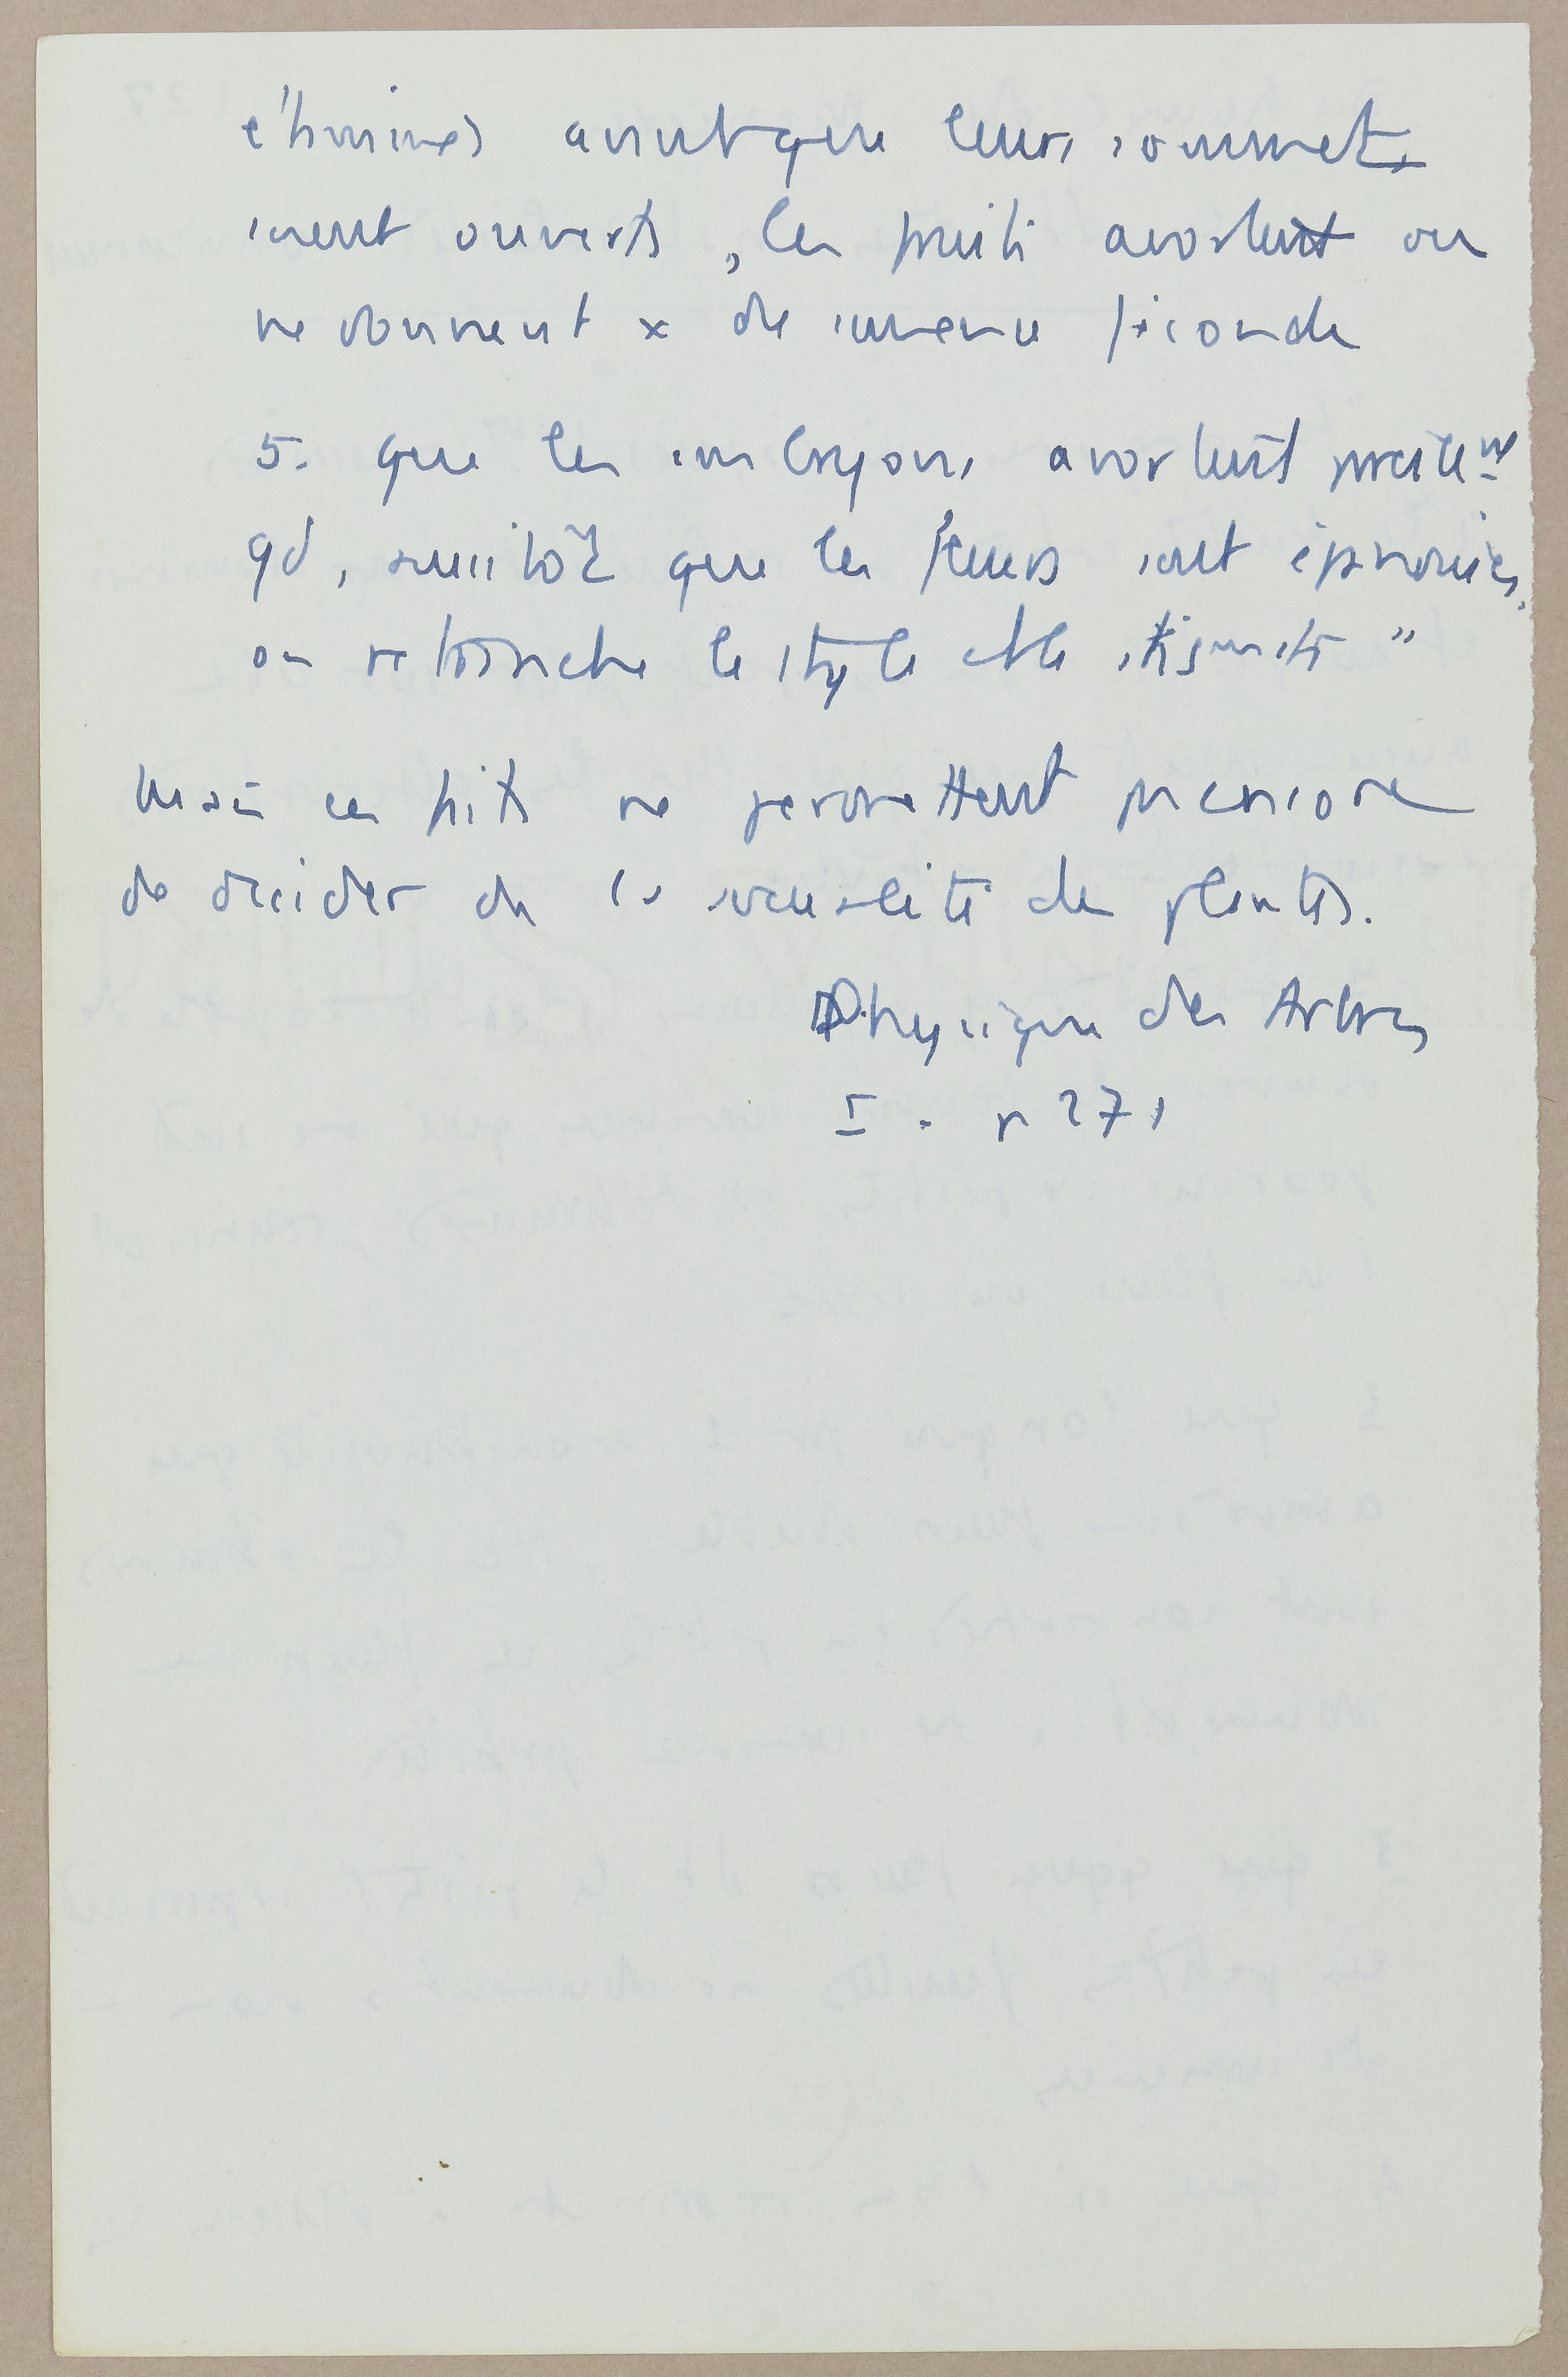 étamines avant que leurs sommets
soient ouverts, les fruits avortent ou
ne donnent x de semence féconde
5. que les embryons avortent parelemt
qd, aussitôt que les fleurs sont épanouies,
on retranche le style et les stigmates "
Mais ces faits ne permettent pas encore
de décider de la sexualité des plantes.
Physique des Arbres
I. p 271